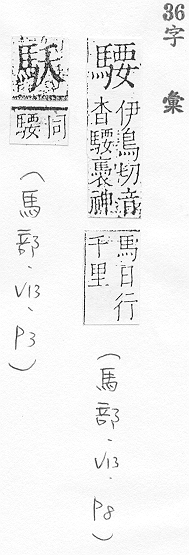 36字彙
騕 伊鳥切音
杳騕褭神
馬日行
千里
(馬部、V13、P8)
𫠋 同
騕
(馬部、V13、P3)